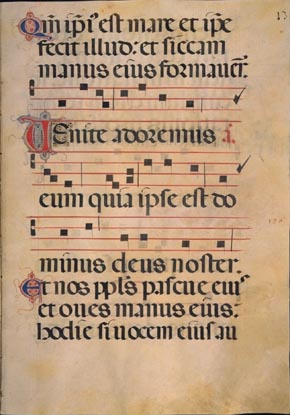 13
Qm̄ ip̄i est mare et ip̄e
fecit illud: et siccam
manus eius formauer̄.
Venite adoremus a.
eum quia ipse est do
minus deus noster.
Et nos ppl̄s pascue eius
et oues manus eius:
hodie si uocem eius au